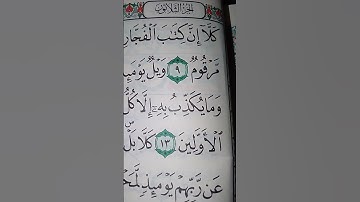 الجزء الثلاثون
كَلَّآ إِنَّ كِتَٰبَ ٱلْفُجَّارِ
مَّرْقُومٌ ٩ وَيْلٌ يَوْمَئِذٍ
وَمَا يُكَذِّبُ بِهِۦٓ إِلَّا كُلُّ
ٱلْأَوَّلِينَ ١٣ كَلَّا بَلْ
عَن رَّبِّهِمْ يَوْمَئِذٍ